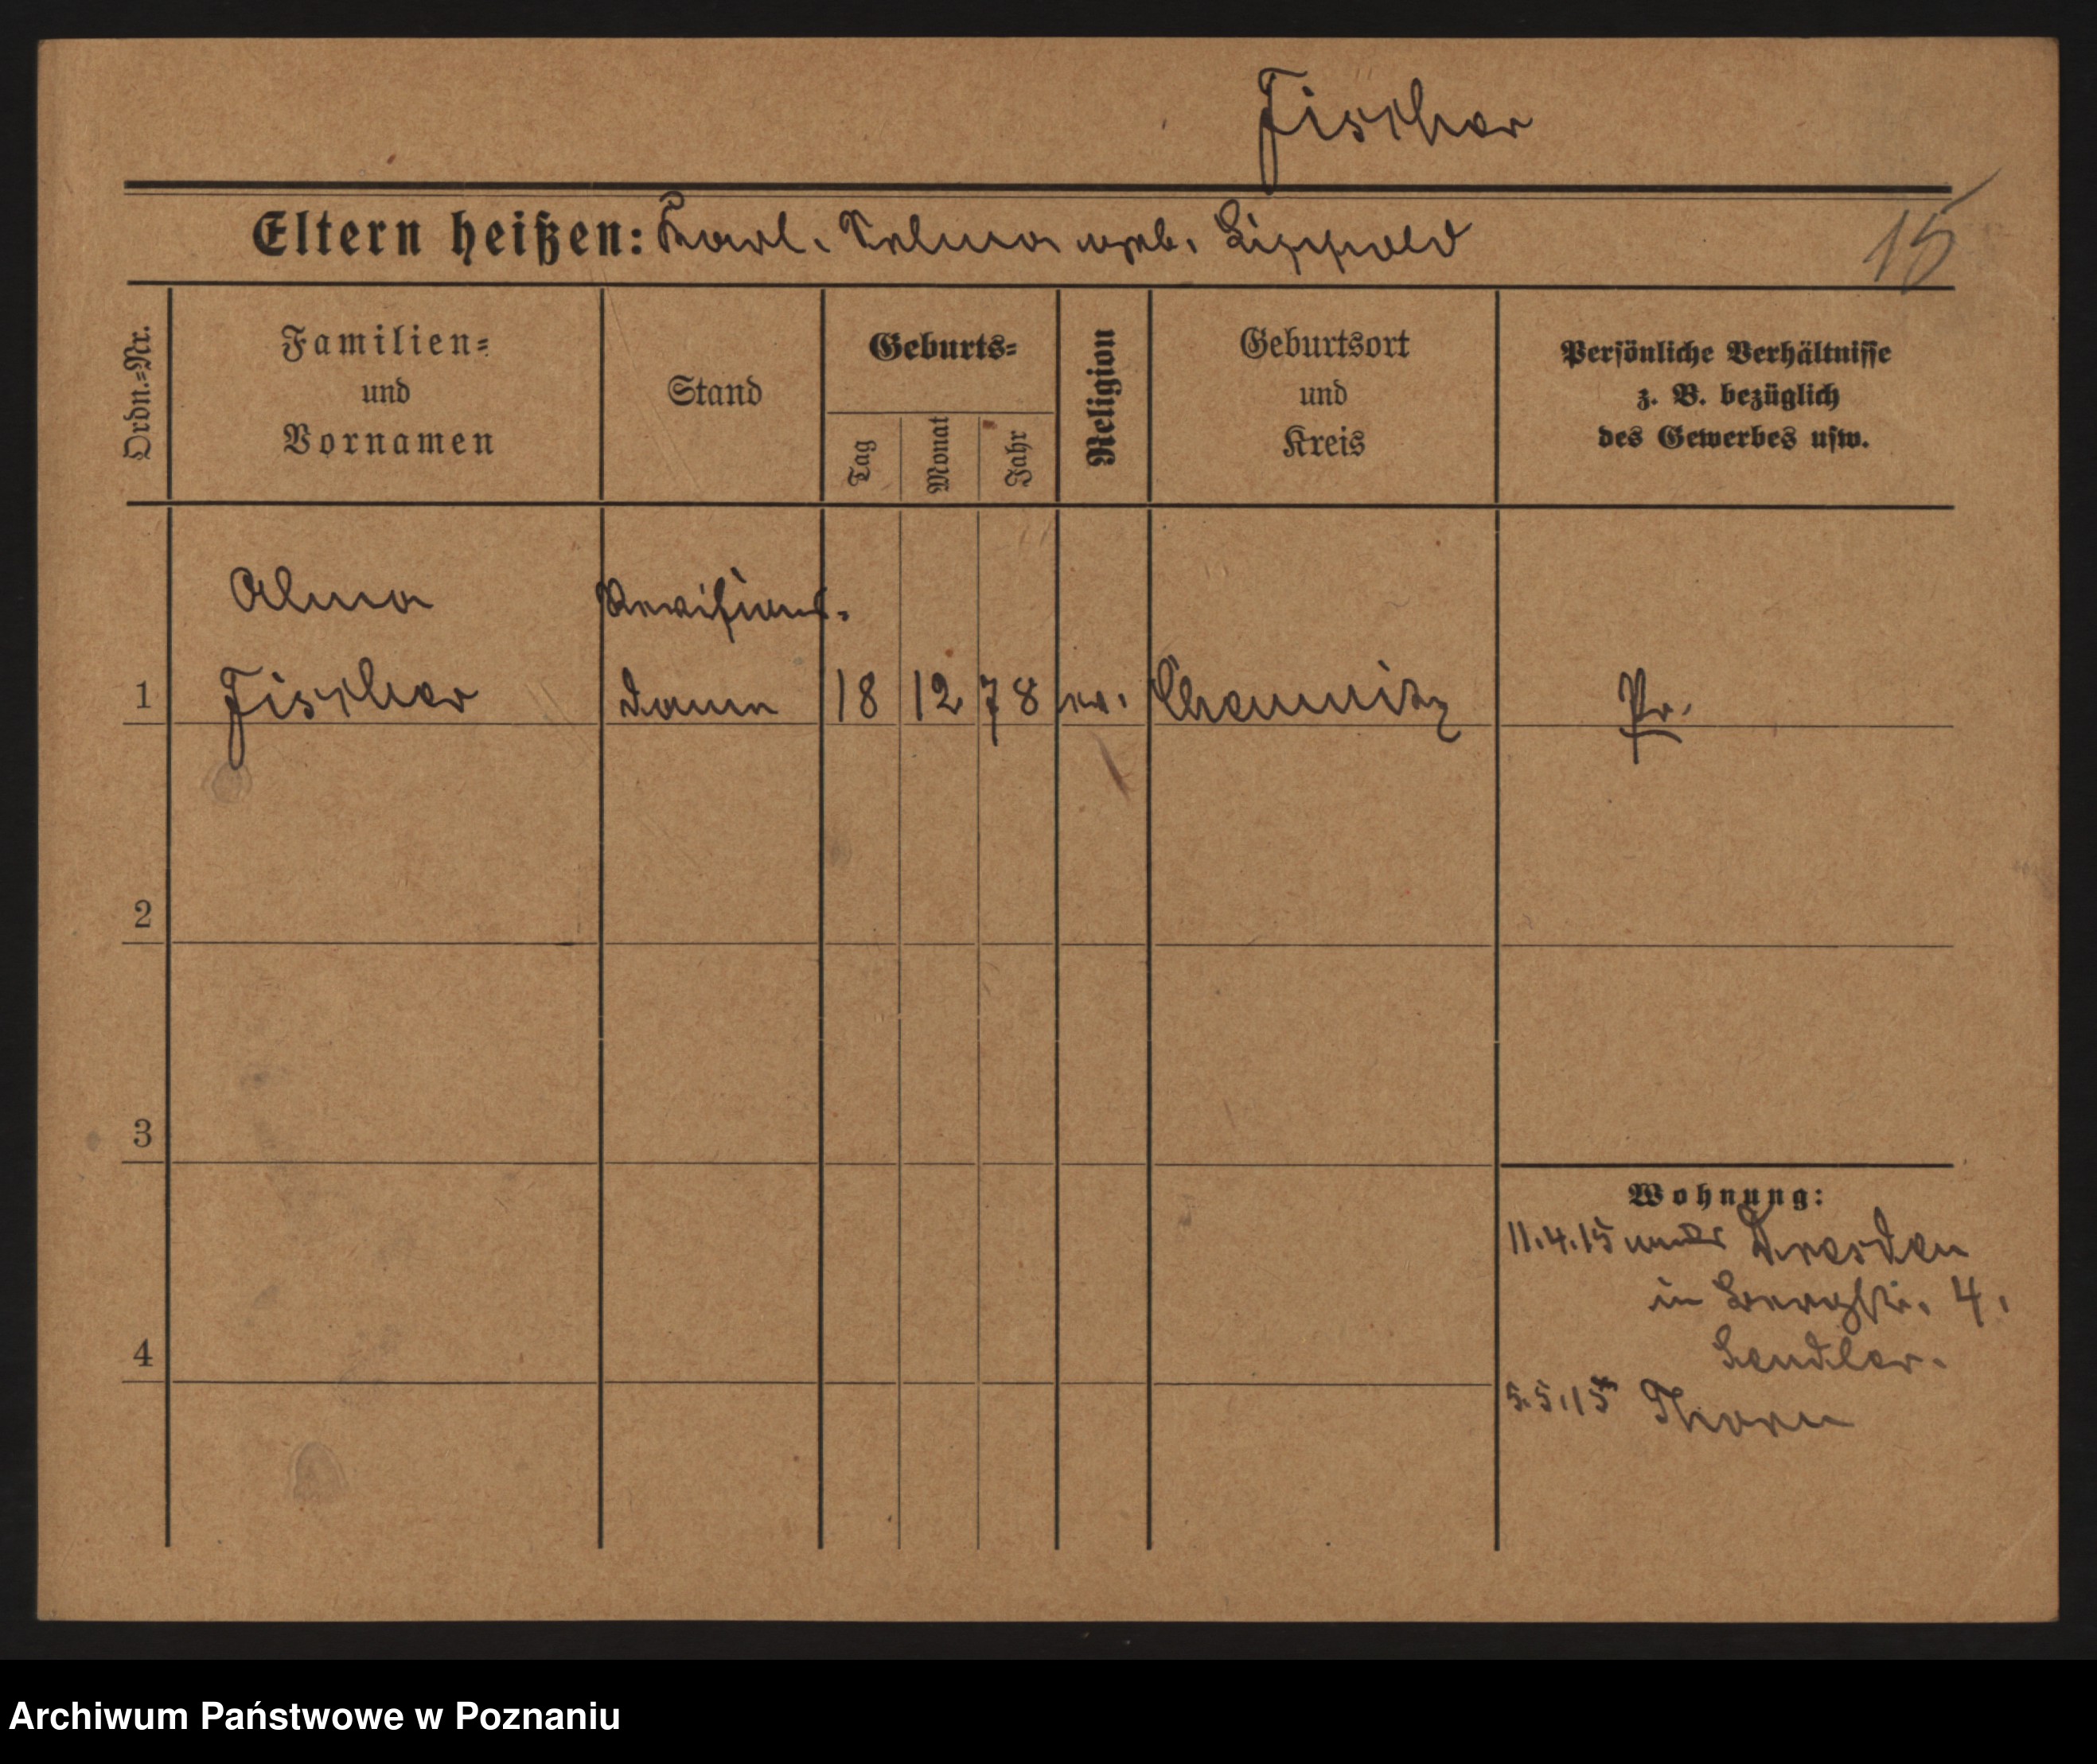 Fischer
Eltern heißen: Karl. Selma geb. Lippold
15
Ordn.=Nr.
Familien=
und
Vornamen
Stand
Geburts=
Tag
Monat
Jahr
Religion
Geburtsort
und
Kreis
Persönliche Verhältnisse
z. B. bezüglich
des Gewerbes usw.
Alma Revisions-
1 Fischer dame 18 12 78 ev. Chemnitz Pr.
2
3
4
Wohnung:
11.4.15 Dresden
in Bergstr. 4.
5.5.15 Thorn
Archiwum Państwowe w Poznaniu